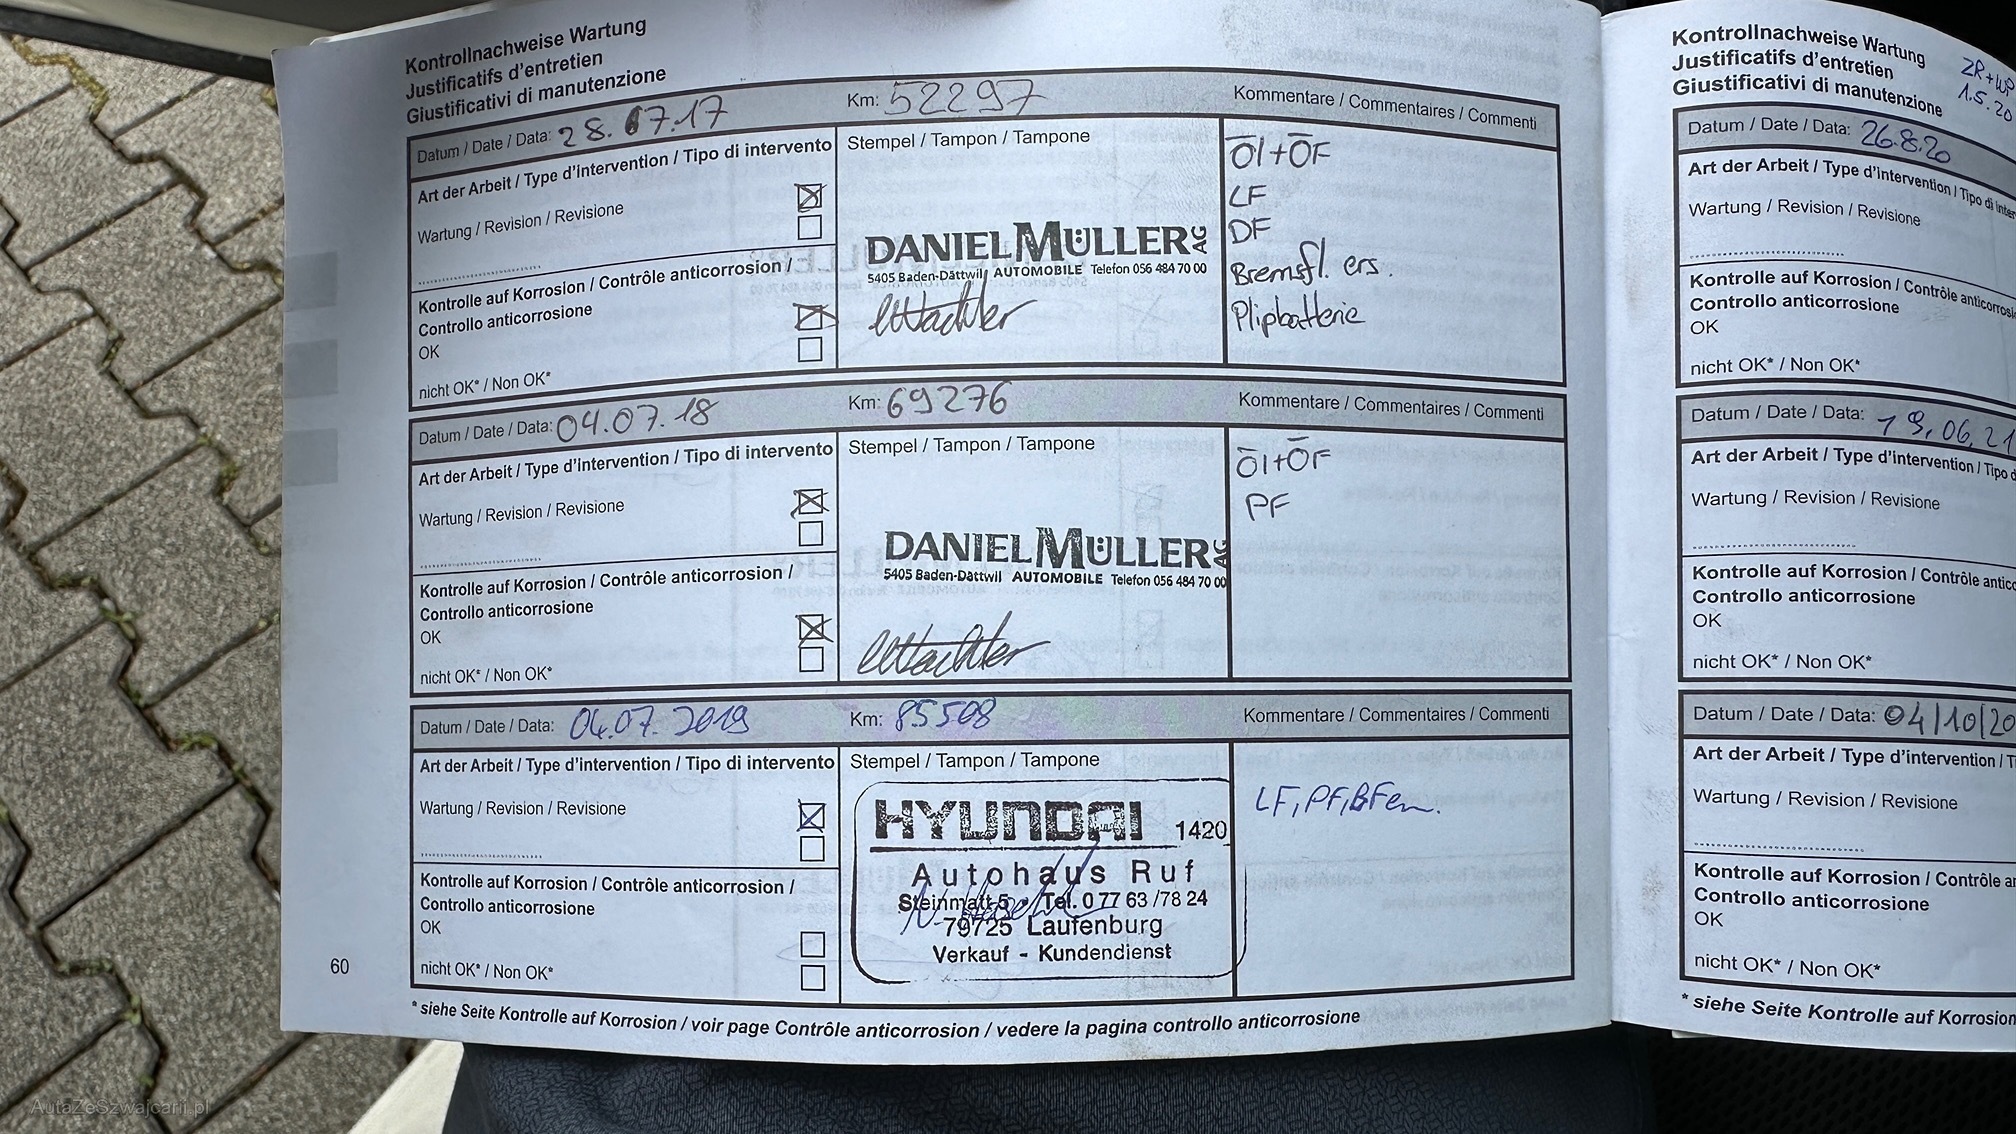 Kontrollnachweise Wartung
Justificatifs d'entretien
Giustificativi di manutenzione
Datum / Date / Data: 28.07.17 Km: 52297 Kommentare / Commentaires / Commenti
Art der Arbeit / Type d'intervention / Tipo di intervento
Wartung / Revision / Revisione
Kontrolle auf Korrosion / Contrôle anticorrosion /
Controllo anticorrosione
OK
nicht OK* / Non OK*
Stempel / Tampon / Tampone
DANIEL MÜLLER AG
5405 Baden-Dättwil AUTOMOBILE Telefon 056 484 70 00
Öl+ÖF
LF
DF
Bremsfl. ers.
Plipbatterie
Datum / Date / Data: 04.07.18 Km: 69276 Kommentare / Commentaires / Commenti
Art der Arbeit / Type d'intervention / Tipo di intervento
Wartung / Revision / Revisione
Kontrolle auf Korrosion / Contrôle anticorrosion /
Controllo anticorrosione
OK
nicht OK* / Non OK*
Stempel / Tampon / Tampone
DANIEL MÜLLER AG
5405 Baden-Dättwil AUTOMOBILE Telefon 056 484 70 00
Öl+ÖF
PF
Datum / Date / Data: 04.07.2019 Km: 85508 Kommentare / Commentaires / Commenti
Art der Arbeit / Type d'intervention / Tipo di intervento
Wartung / Revision / Revisione
Kontrolle auf Korrosion / Contrôle anticorrosion /
Controllo anticorrosione
OK
nicht OK* / Non OK*
Stempel / Tampon / Tampone
HYUNDAI 1420
Autohaus Ruf
Steinmatt 5 • Tel. 0 77 63 / 78 24
79725 Laufenburg
Verkauf - Kundendienst
LF, PF, BF
60
* siehe Seite Kontrolle auf Korrosion / voir page Contrôle anticorrosion / vedere la pagina controllo anticorrosione
Kontrollnachweise Wartung
Justificatifs d'entretien
Giustificativi di manutenzione
ZR+WP
1.5.20
Datum / Date / Data: 26.8.20
Art der Arbeit / Type d'intervention / Tipo di inter
Wartung / Revision / Revisione
Kontrolle auf Korrosion / Contrôle anticorrosi
Controllo anticorrosione
OK
nicht OK* / Non OK*
Datum / Date / Data: 19.06.21
Art der Arbeit / Type d'intervention / Tipo d
Wartung / Revision / Revisione
Kontrolle auf Korrosion / Contrôle antico
Controllo anticorrosione
OK
nicht OK* / Non OK*
Datum / Date / Data: 04/10/20
Art der Arbeit / Type d'intervention / T
Wartung / Revision / Revisione
Kontrolle auf Korrosion / Contrôle a
Controllo anticorrosione
OK
nicht OK* / Non OK*
* siehe Seite Kontrolle auf Korrosion
AutaZeSzwajcarii.pl